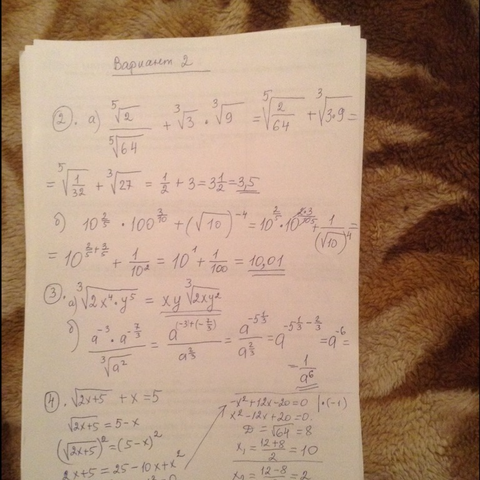 Вариант 2
②. а) ⁵√2 / ⁵√64 + ³√3 · ³√9 = ⁵√(2/64) + ³√(3·9) =
= ⁵√(1/32) + ³√27 = 1/2 + 3 = 3 1/2 = 3,5
б) 10^(2/5) · 100^(3/10) + (√10)^(-4) = 10^(2/5) · 10^(2·3/10) + 1/(√10)^4 =
= 10^(2/5+3/5) + 1/10² = 10¹ + 1/100 = 10,01
③. а) ³√(2x⁴·y⁵) = xy ³√(2xy²)
б) (a^(-3) · a^(-7/3)) / ³√(a²) = a^(-3+(-7/3)) / a^(2/3) = a^(-5 1/3) / a^(2/3) = a^(-5 1/3 - 2/3) = a^(-6) =
= 1/a⁶
④. √(2x+5) + x = 5
√(2x+5) = 5-x
(√(2x+5))² = (5-x)²
2x+5 = 25-10x+x²
-x²+12x-20=0 |·(-1)
x²-12x+20=0.
D = √64 = 8
x₁ = (12+8)/2 = 10
x₂ = (12-8)/2 = 2